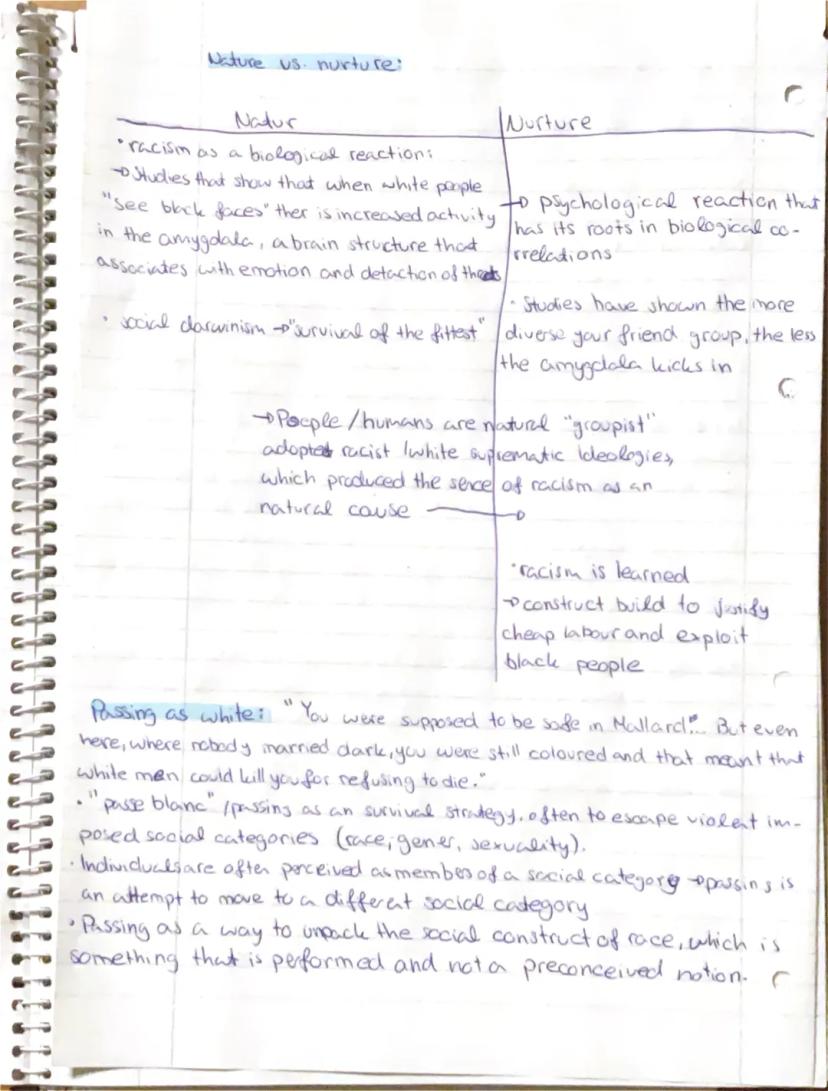 Nature vs. nurture:
Natur
Nurture
• racism as a biological reaction:
→ Studies that show that when white people
"see black faces" ther is increased activity
in the amygdala, a brain structure that
associates with emotion and detaction of
• social darwinism → "survival of the fittest"
→ psychological reaction that
has its roots in biological co-
rrelations
• Studies have shown the more
diverse your friend group, the less
the amygdala kicks in
→ People /humans are natural "groupist"
adopted racist /white suprematic Ideologies,
which produced the sence of racism as an
natural cause →
• racism is learned
→ construct build to justify
cheap labour and exploit
black people
Passing as white: "You were supposed to be safe in Mallard"... But even
here, where nobody married dark, you were still coloured and that meant that
white men could kill you for refusing to die."
• "passe blanc" /passing as an survival strategy, often to escape violent im-
posed social categories (race, gener, sexuality).
• Individuals are often perceived as member of a social category → passing is
an attempt to move to a different social category
• Passing as a way to unpack the social construct of race, which is
something that is performed and not a preconceived notion.